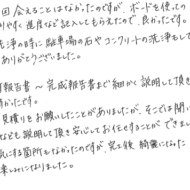 回会えることはなかったのですが、ボードを使っての
りやすく進度など記入してもらえたので、良かったです。
洗浄の時に駐車場の石やコンクリートの洗浄もして
ありがとうございました。
報告書 ～ 完成報告書まで細かく説明して頂き
かったです。
見積りをお願いしたことがありましたが、そこでは聞い
なども説明して頂き安心してお任せすることができまし
気にする箇所もなかったのですが、完工後 綺麗になった
楽しみになりました。